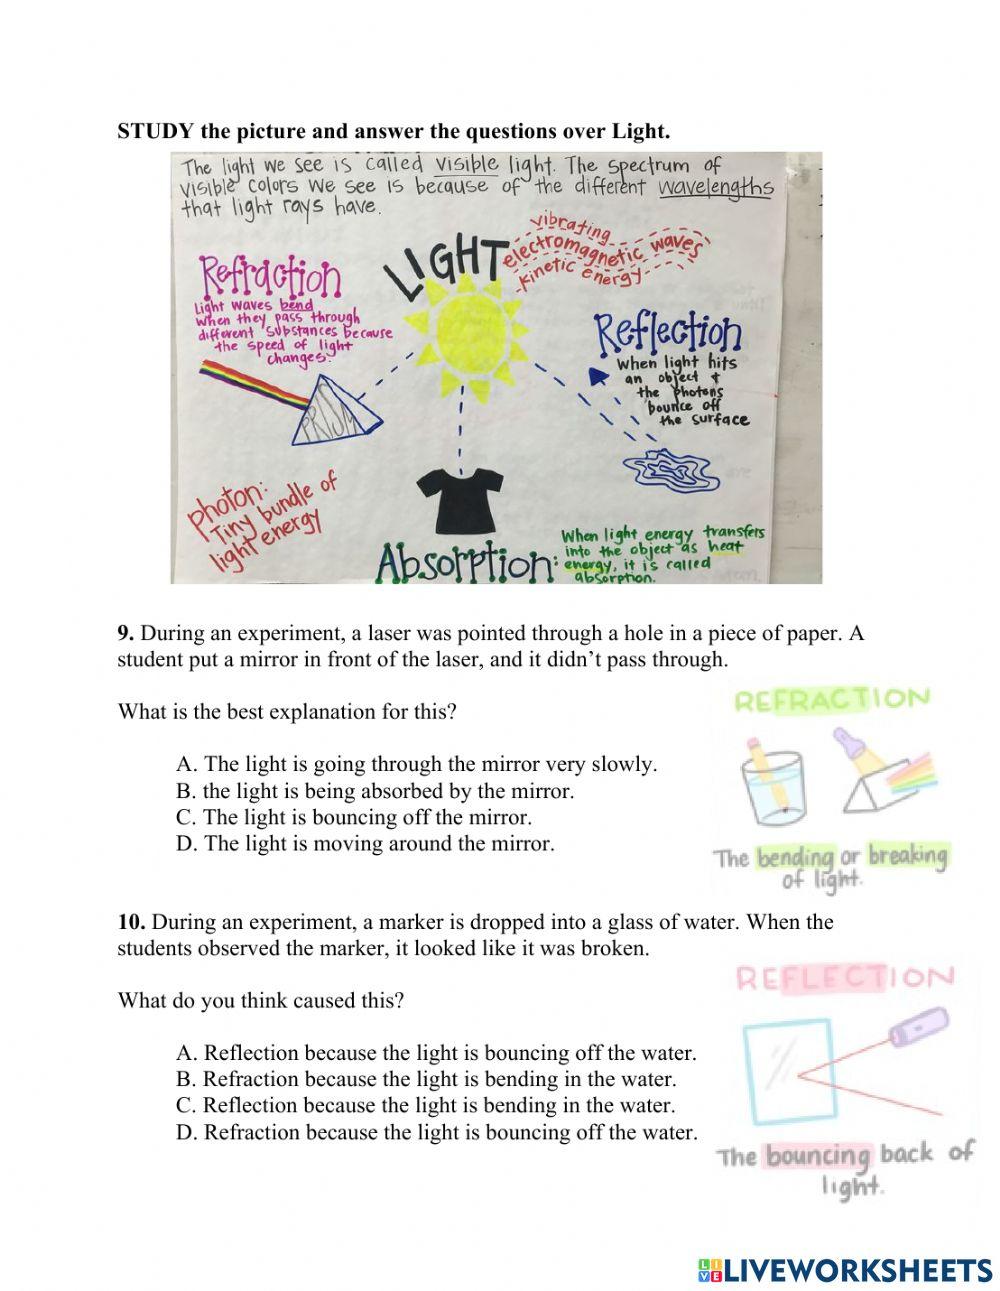 STUDY the picture and answer the questions over Light.
The light we see is called visible light. The spectrum of
visible colors we see is because of the different wavelengths
that light rays have.
LIGHT
vibrating
electromagnetic waves
kinetic energy
Refraction
Light waves bend
when they pass through
different substances because
the speed of light
changes.
PRISM
Reflection
When light hits
an object +
the photons
bounce off
the surface
photon:
Tiny bundle of
light energy
Absorption:
When light energy transfers
into the object as heat
energy, it is called
absorption.
9. During an experiment, a laser was pointed through a hole in a piece of paper. A
student put a mirror in front of the laser, and it didn’t pass through.
What is the best explanation for this?
A. The light is going through the mirror very slowly.
B. the light is being absorbed by the mirror.
C. The light is bouncing off the mirror.
D. The light is moving around the mirror.
REFRACTION
The bending or breaking
of light.
10. During an experiment, a marker is dropped into a glass of water. When the
students observed the marker, it looked like it was broken.
What do you think caused this?
A. Reflection because the light is bouncing off the water.
B. Refraction because the light is bending in the water.
C. Reflection because the light is bending in the water.
D. Refraction because the light is bouncing off the water.
REFLECTION
The bouncing back of
light.
LIVE LIVEWORKSHEETS